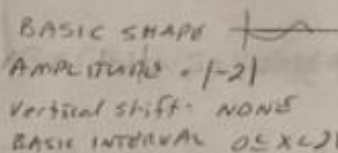 BASIC SHAPE
AMPLITUDE = |-2|
Vertical shift: NONE
BASIC INTERVAL 0≤X<2